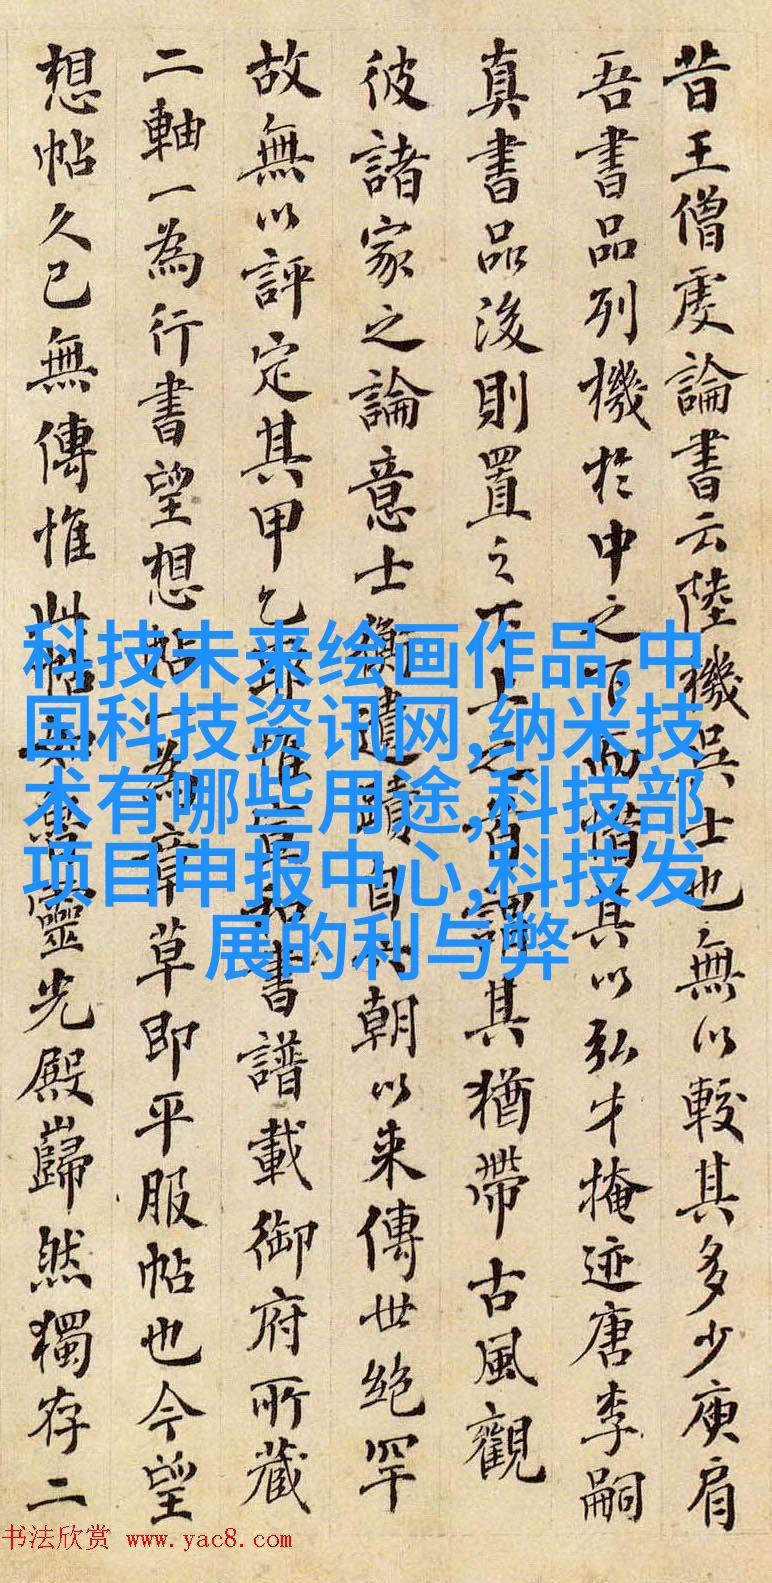 昔王僧虔論書云陸機吳士也無以較其多少庾肩
吾書品列機於中之下而惜其以弘才掩迹唐李嗣
真書品後則置之下上之首謂其猶帶古風觀
彼諸家之論意士衡遺蹟自六朝以来傳世絶罕
故無以評定其甲乙耶惟宣和書譜載御府所藏
二軸一為行書望想帖一為章草即平服帖也今望
想帖久已無傳惟此帖如魯靈光殿巋然獨存二
科技未来绘画作品,中
国科技资讯网,纳米技
术有哪些用途,科技部
项目申报中心,科技发
展的利与弊
书法欣赏 www.yac8.com